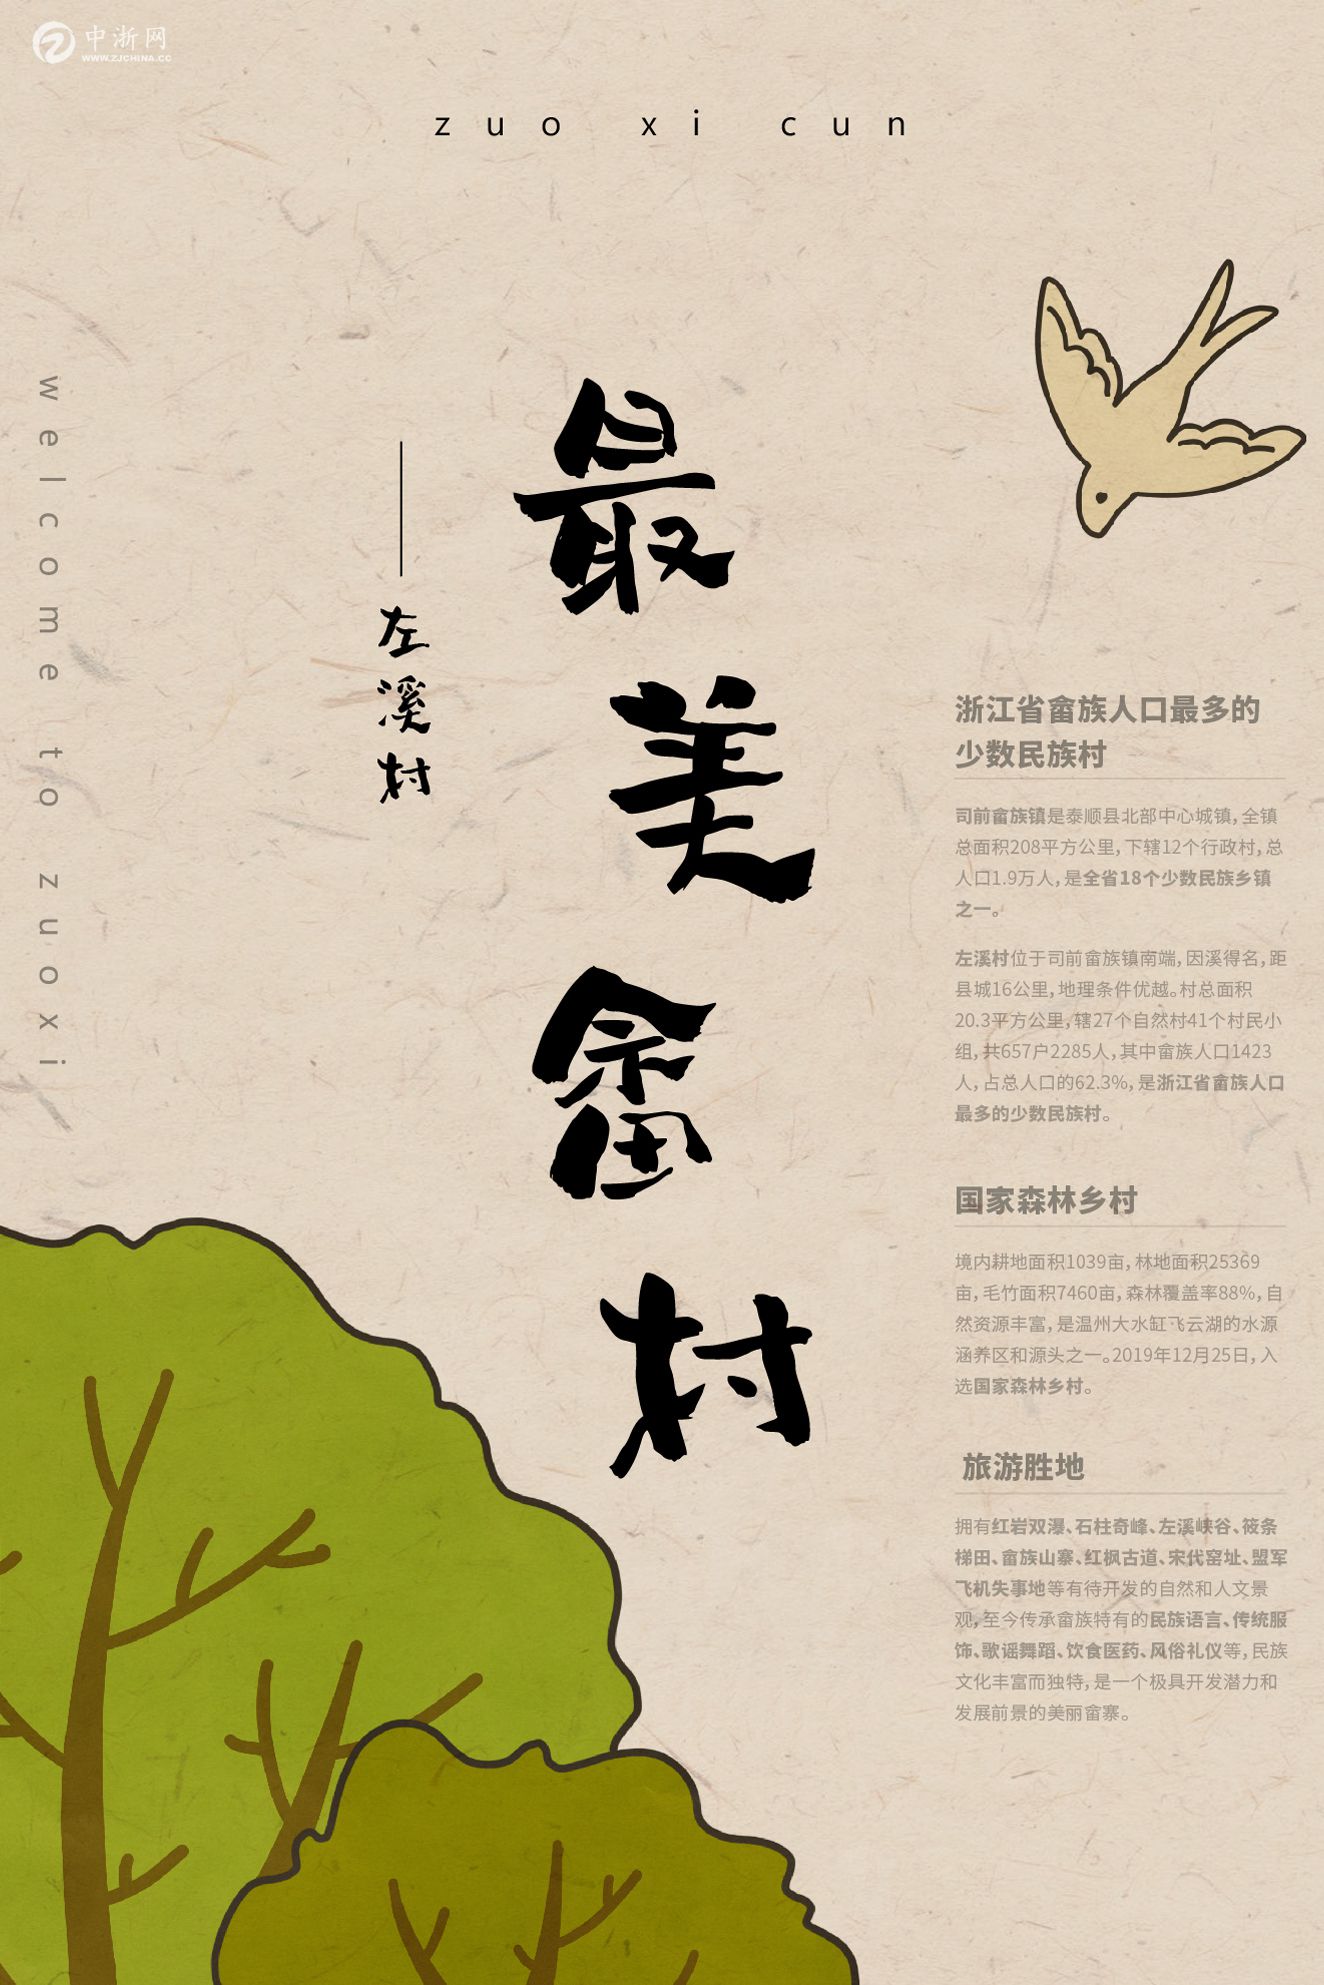 中浙网
WWW.ZJCHINA.CC
zuo xi cun
welcome to zuoxi
最美畲村
——左溪村
浙江省畲族人口最多的
少数民族村
司前畲族镇是泰顺县北部中心城镇，全镇
总面积208平方公里，下辖12个行政村，总
人口1.9万人，是全省18个少数民族乡镇
之一。
左溪村位于司前畲族镇南端，因溪得名，距
县城16公里，地理条件优越。村总面积
20.3平方公里，辖27个自然村41个村民小
组，共657户2285人，其中畲族人口1423
人，占总人口的62.3%，是浙江省畲族人口
最多的少数民族村。
国家森林乡村
境内耕地面积1039亩，林地面积25369
亩，毛竹面积7460亩，森林覆盖率88%，自
然资源丰富，是温州大水缸飞云湖的水源
涵养区和源头之一。2019年12月25日，入
选国家森林乡村。
旅游胜地
拥有红岩双瀑、石柱奇峰、左溪峡谷、筱条
梯田、畲族山寨、红枫古道、宋代窑址、盟军
飞机失事地等有待开发的自然和人文景
观，至今传承畲族特有的民族语言、传统服
饰、歌谣舞蹈、饮食医药、风俗礼仪等，民族
文化丰富而独特，是一个极具开发潜力和
发展前景的美丽畲寨。